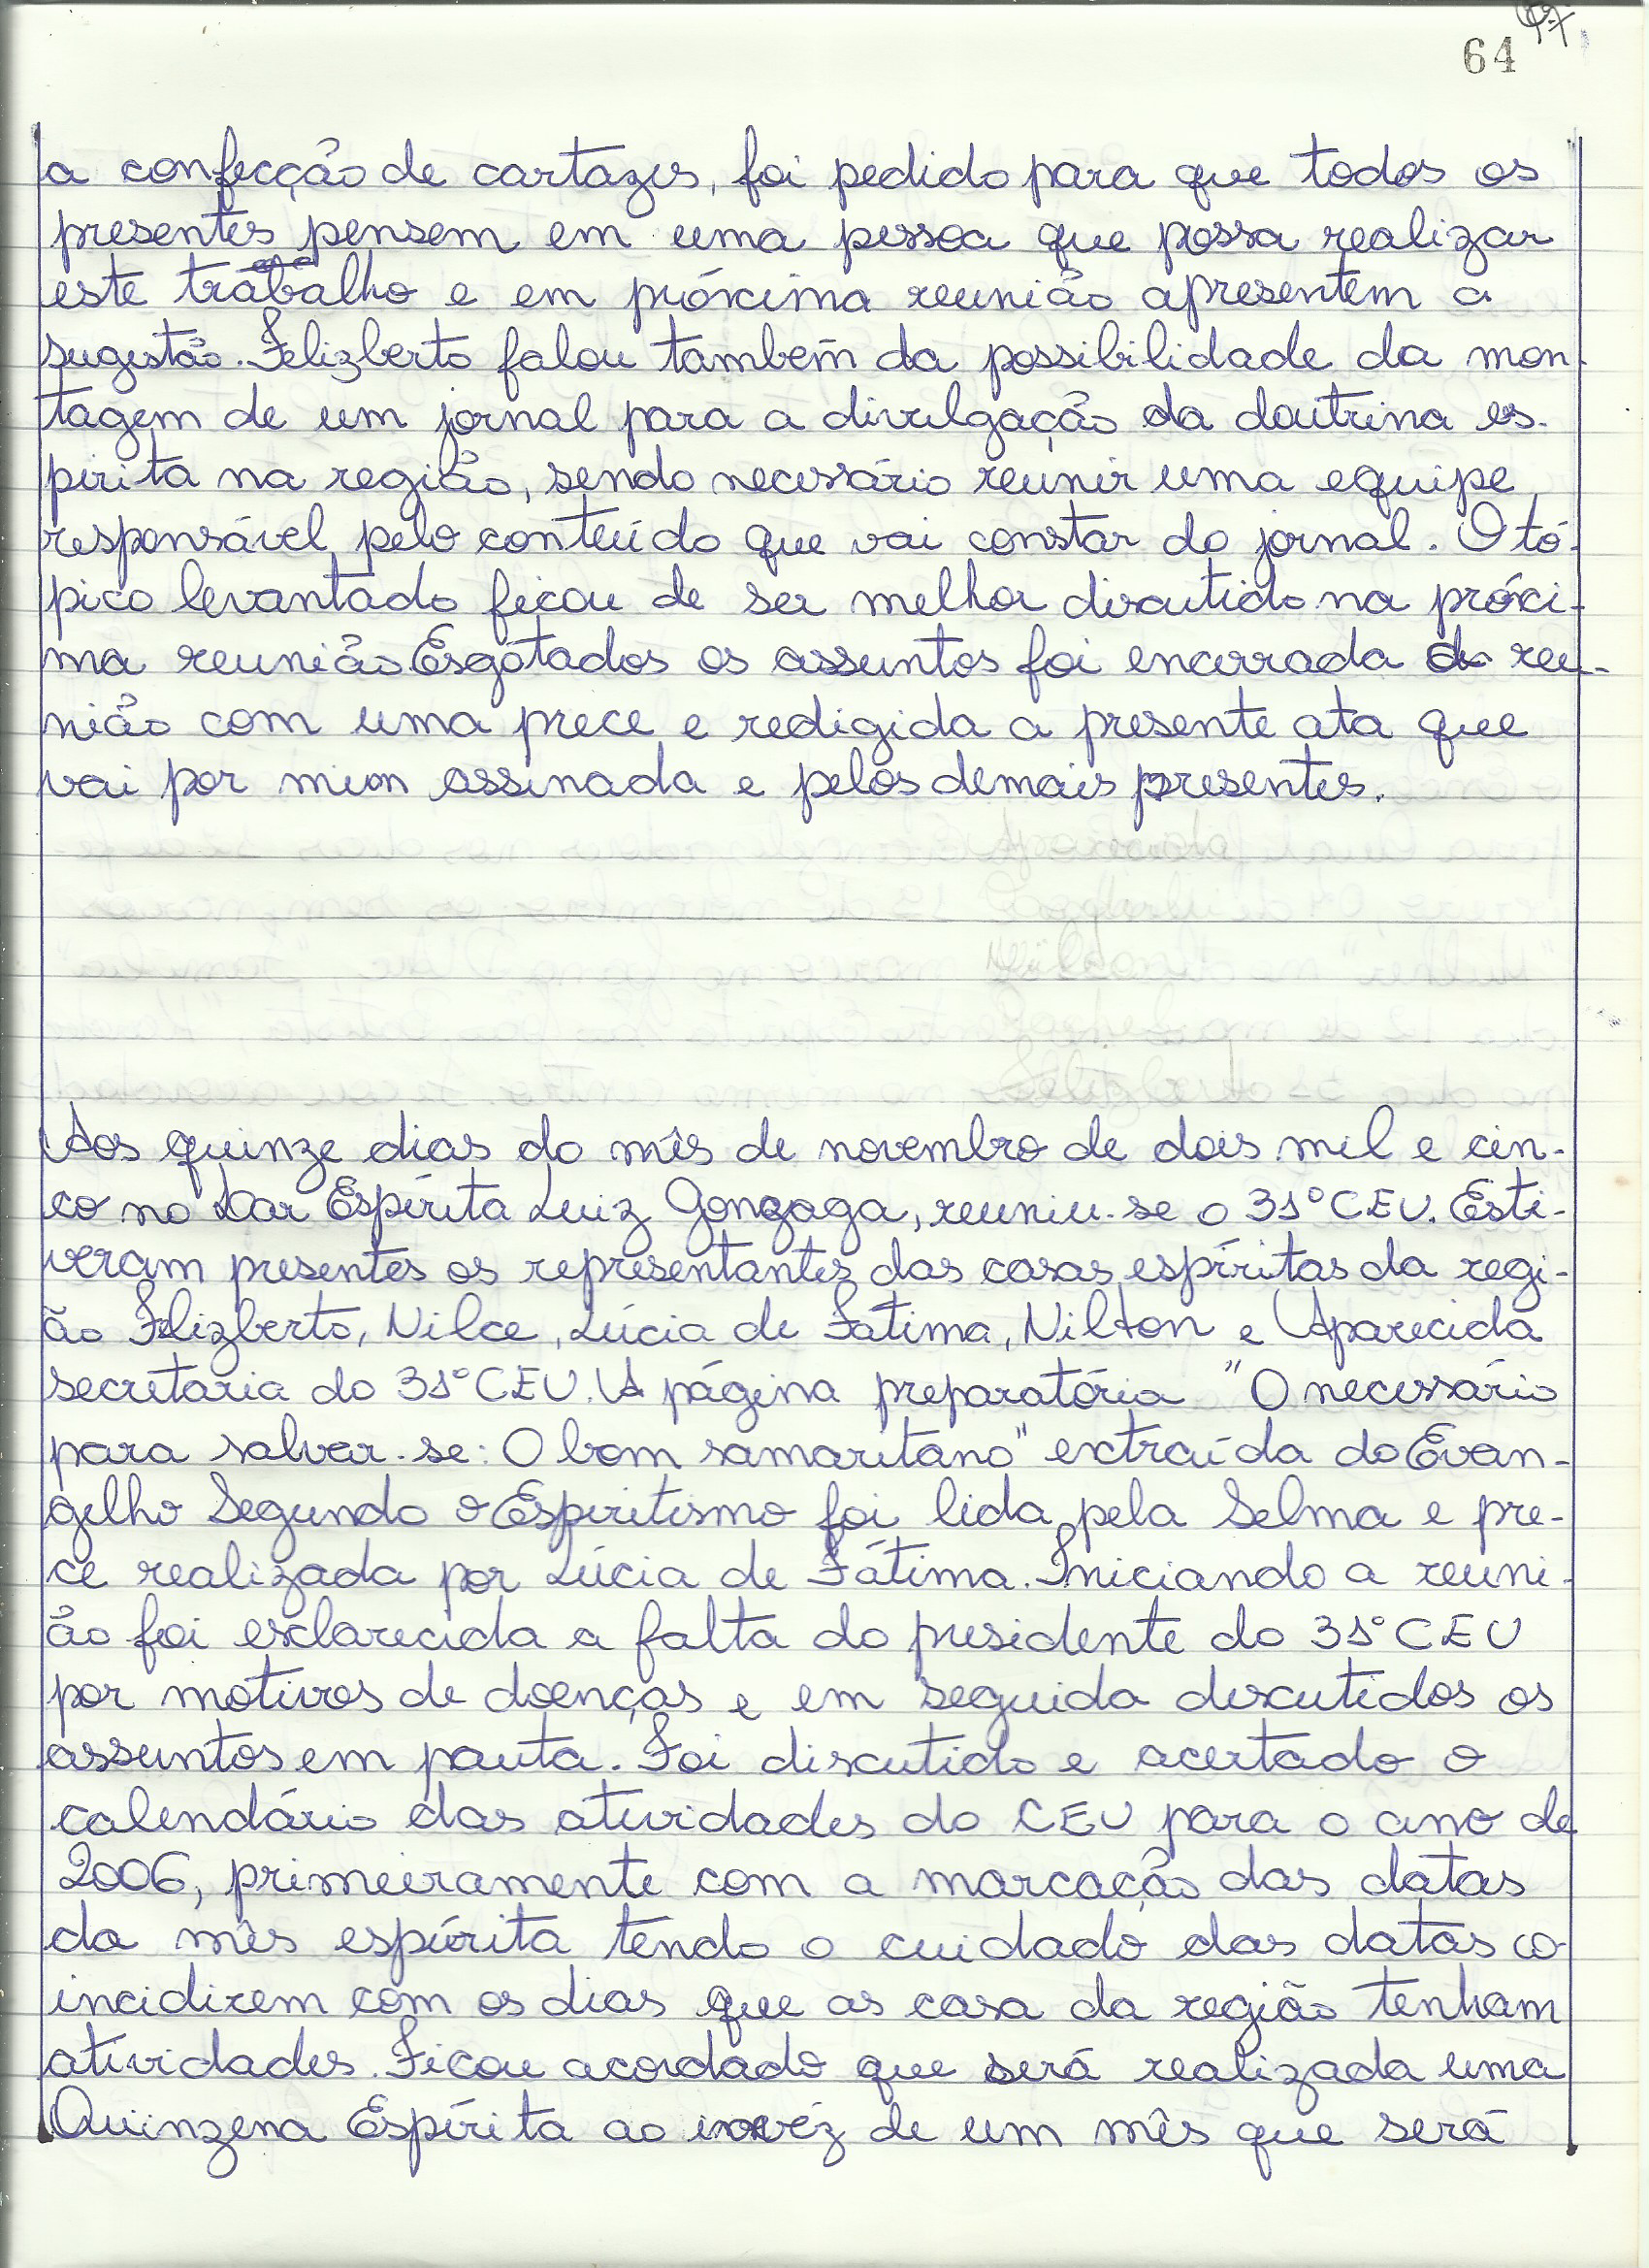 64
a confecção de cartazes, foi pedido para que todos os
presentes pensem em uma pessoa que possa realizar
este trabalho e em próxima reunião apresentem a
sugestão. Felizberto falou também da possibilidade da mon-
tagem de um jornal para a divulgação da doutrina es-
pirita na região, sendo necessário reunir uma equipe
responsável pelo conteúdo que vai constar do jornal. O tó-
pico levantado ficou de ser melhor discutido na próxi-
ma reunião Esgotados os assuntos foi encerrada a reu-
nião com uma prece e redigida a presente ata que
vai por mim assinada e pelos demais presentes.
Aos quinze dias do mês de novembro de dois mil e cin-
co no Lar Espírita Luiz Gonzaga, reuniu-se o 31º CEU. Esti-
veram presentes os representantes das casas espíritas da regi-
ão Felizberto, Nilce, Lúcia de Fátima, Nilton e Aparecida
secretaria do 31º CEU. A página preparatória "O necessário
para salvar-se: O bom samaritano" extraída do Evan-
gelho Segundo o Espiritismo foi lida pela Selma e pre-
ce realizada por Lúcia de Fátima. Iniciando a reuni-
ão foi esclarecida a falta do presidente do 31º CEU
por motivos de doenças e em seguida discutidos os
assuntos em pauta. Foi discutido e acertado o
calendário das atividades do CEU para o ano de
2006, primeiramente com a marcação das datas
da mês espírita tendo o cuidado das datas co-
incidirem com os dias que as casa da região tenham
atividades. Ficou acordado que será realizada uma
Quinzena Espírita ao invéz de um mês que será